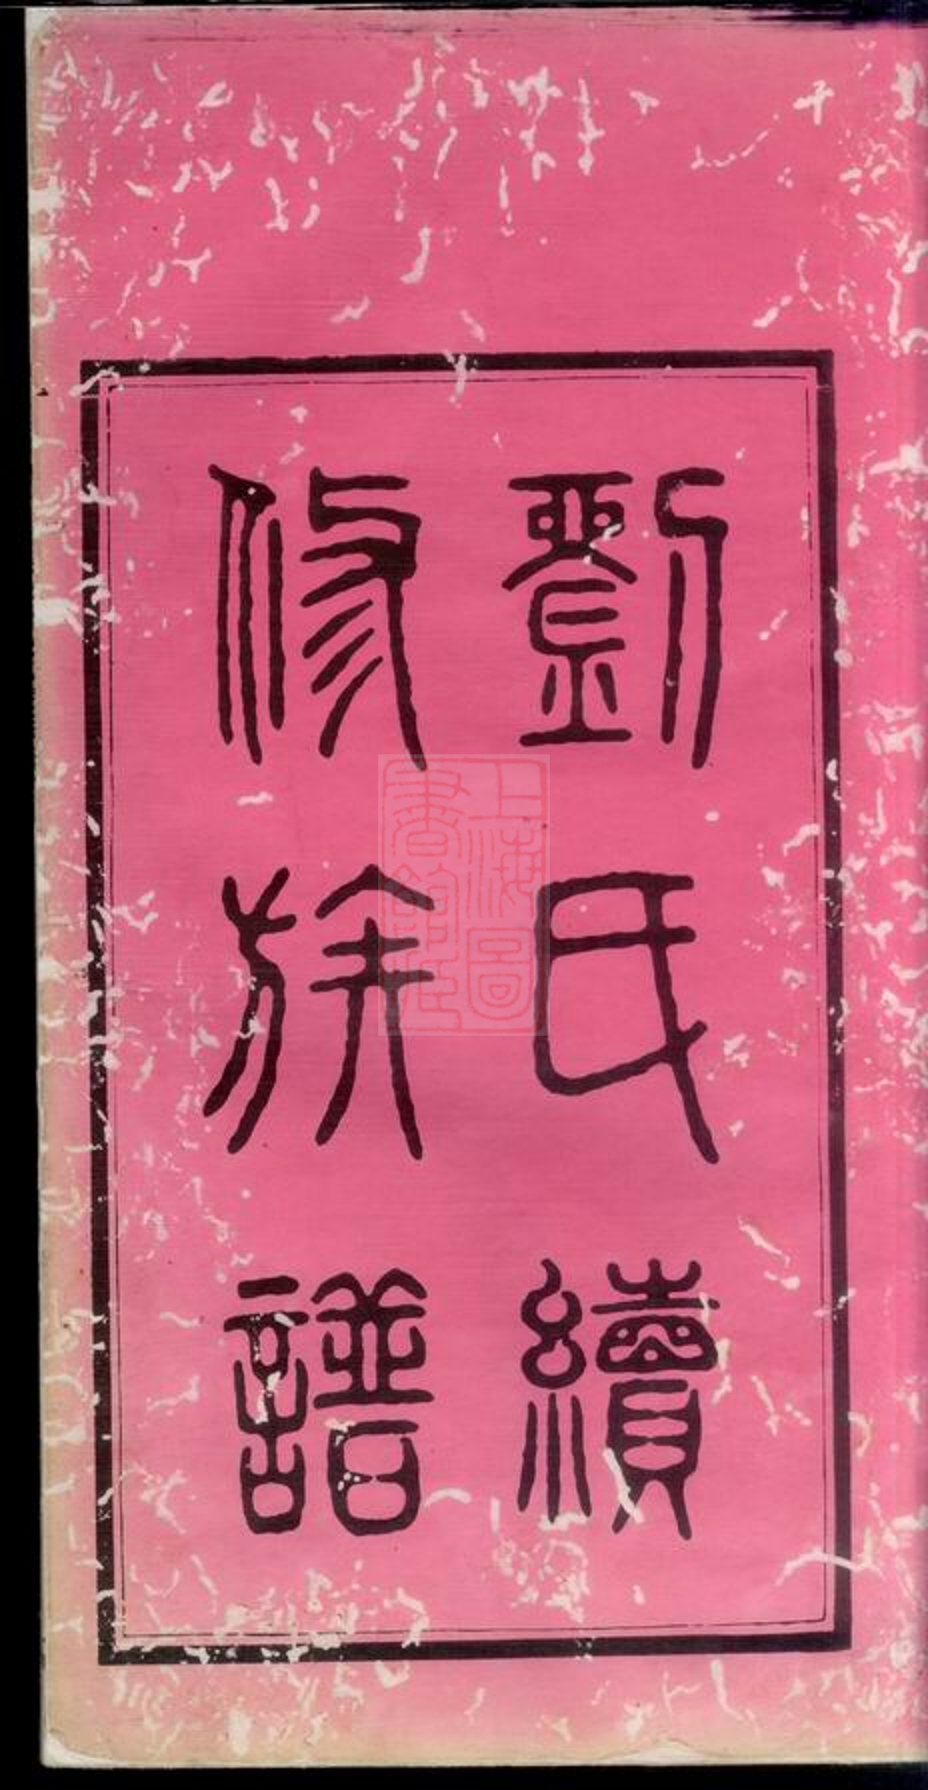 劉氏續
修族譜
上海圖
書館藏